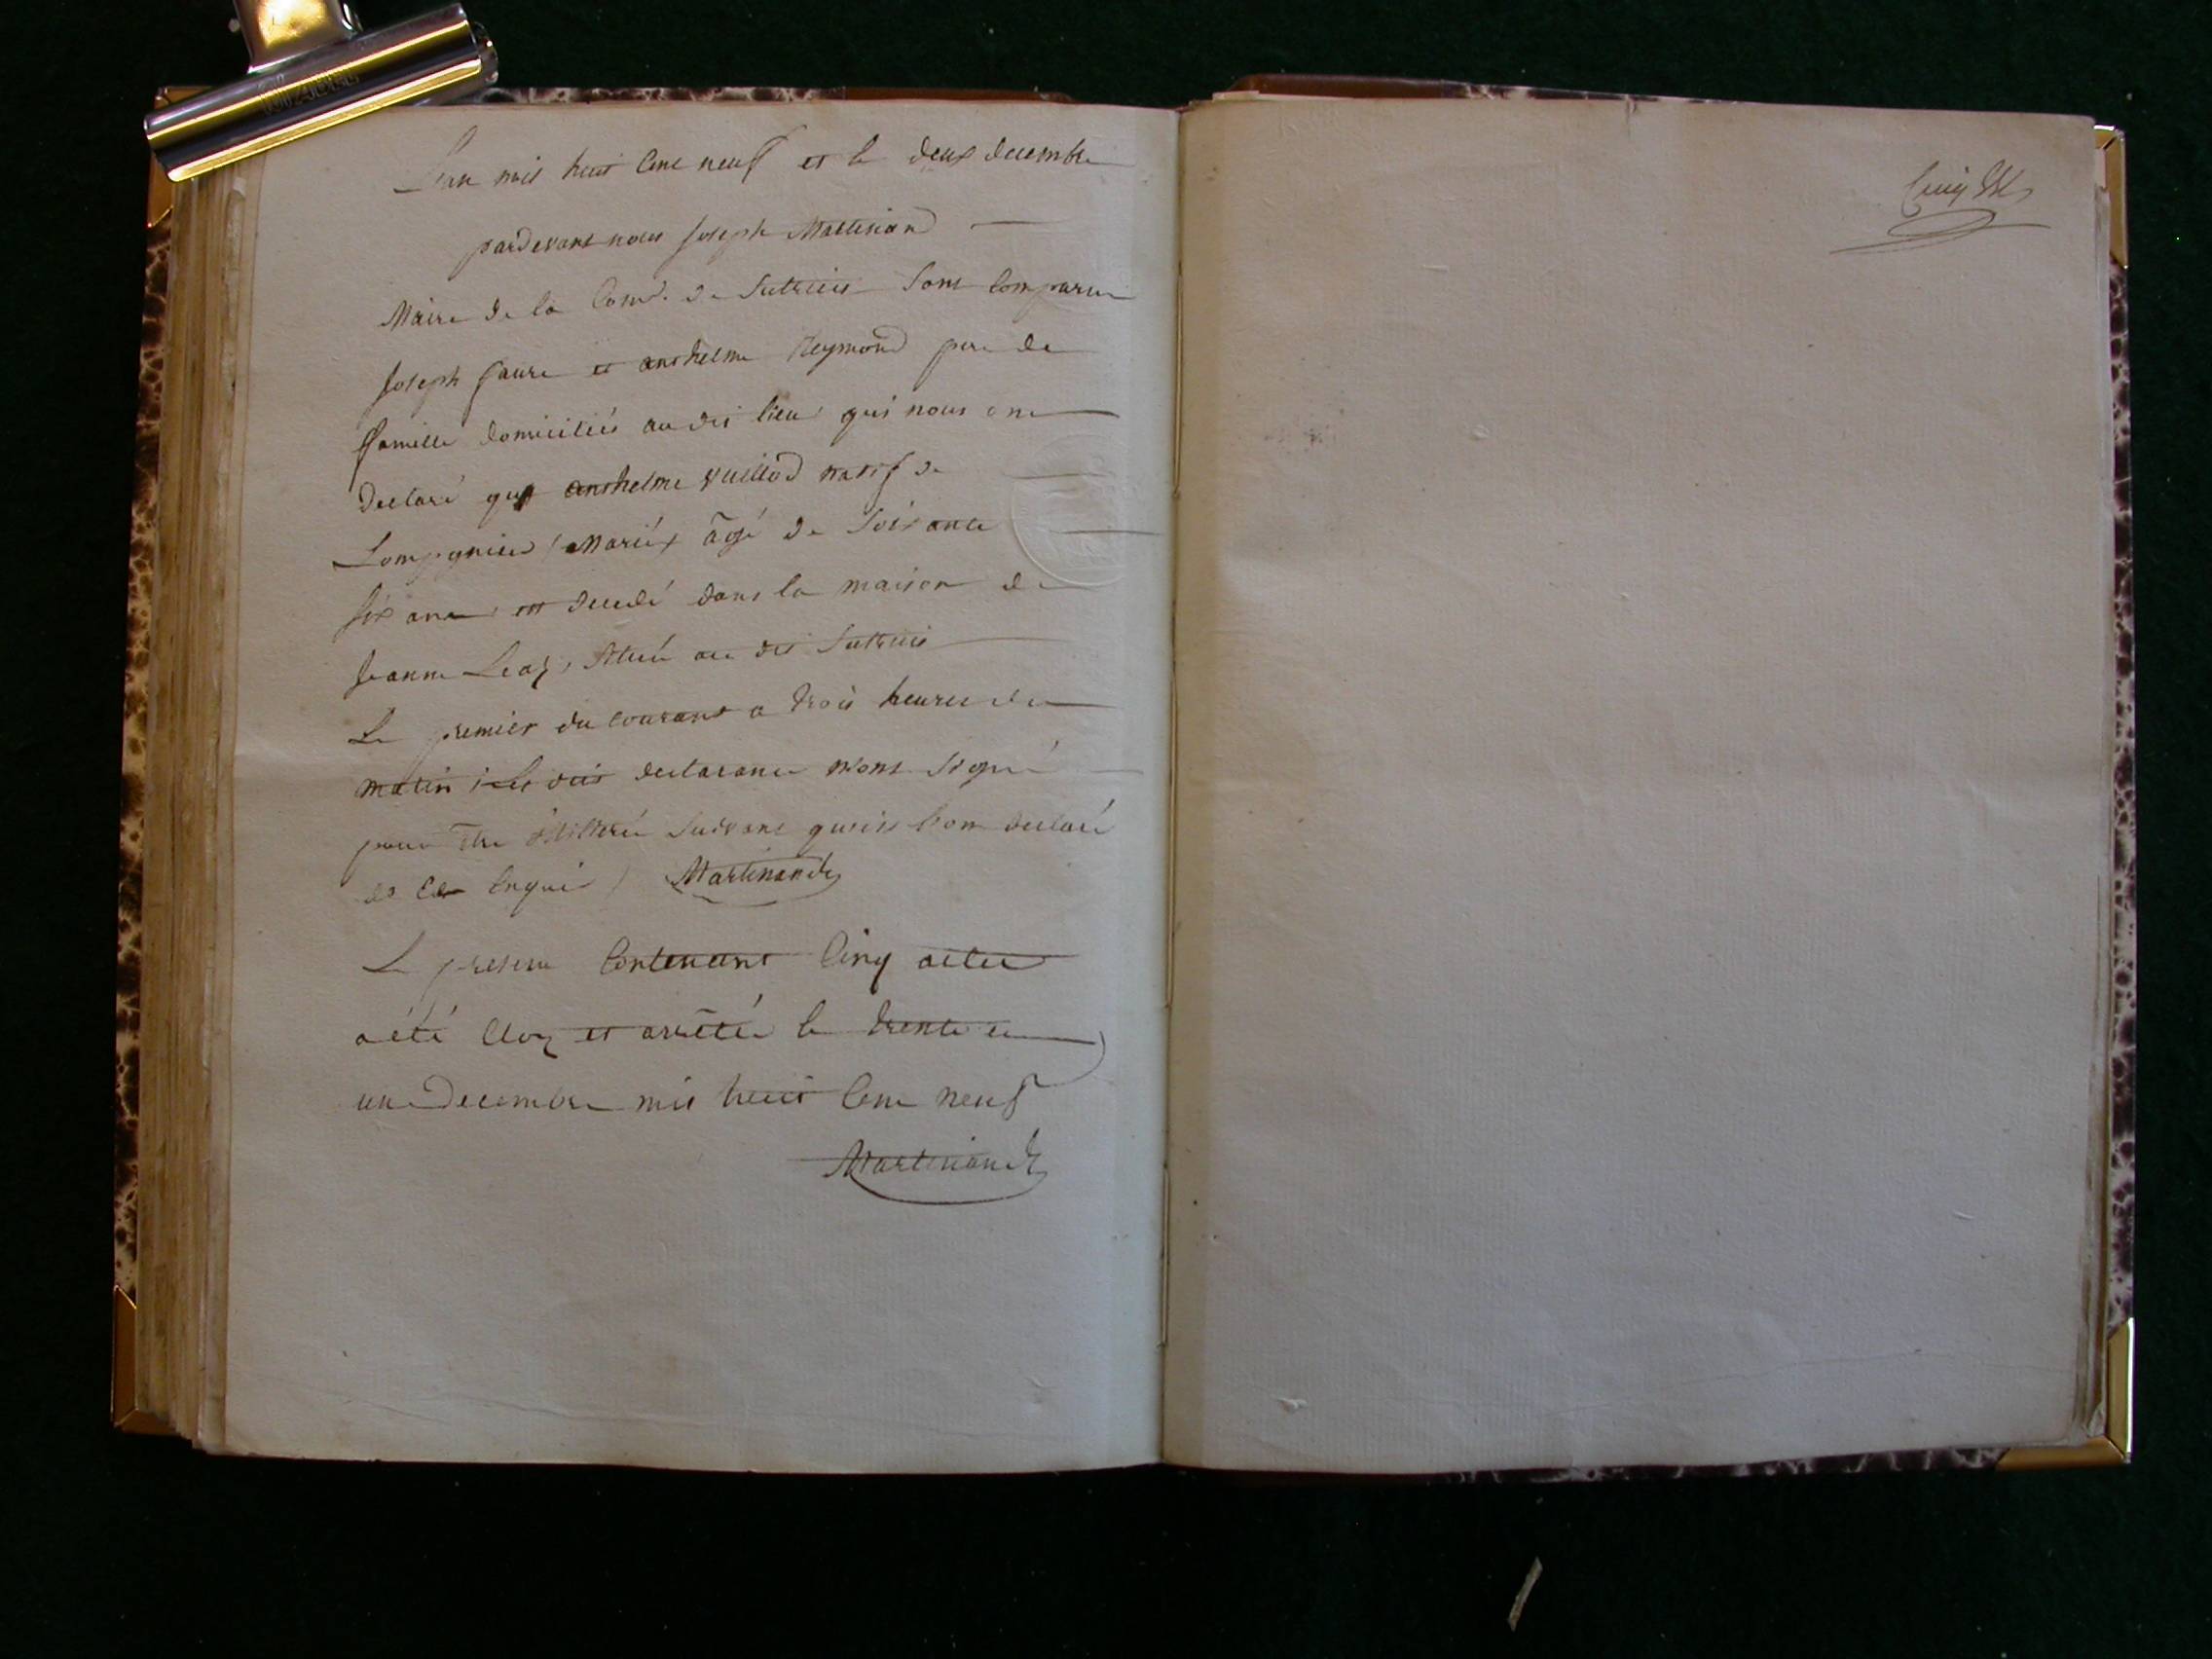 L'an mil huit Cent neuf et le deux decembre
pardevant nous Joseph Martinand
Maire de la Com.e de Sutrieu Sont Comparus
Joseph faure et anthelme Reymond pere de
famille domiciliés au dit lieu qui nous ont
declaré que anthelme vuillod natif de
Lompgnieu, Marié, âgé de Soixante
Six ans, est decedé dans la maison de
Jeanne, Située au dit Sutrieu
Le premier du courant a trois heures du
matin, Les dits declarants n'ont Signé
pour être illiteré Suivant qu'ils l'ont declaré
de Ce Enquis / Martinand
Le present Contenant Cinq actes
a été Cloz et arrêté le trente et
un Decembre mil huit Cent neuf
Martinand